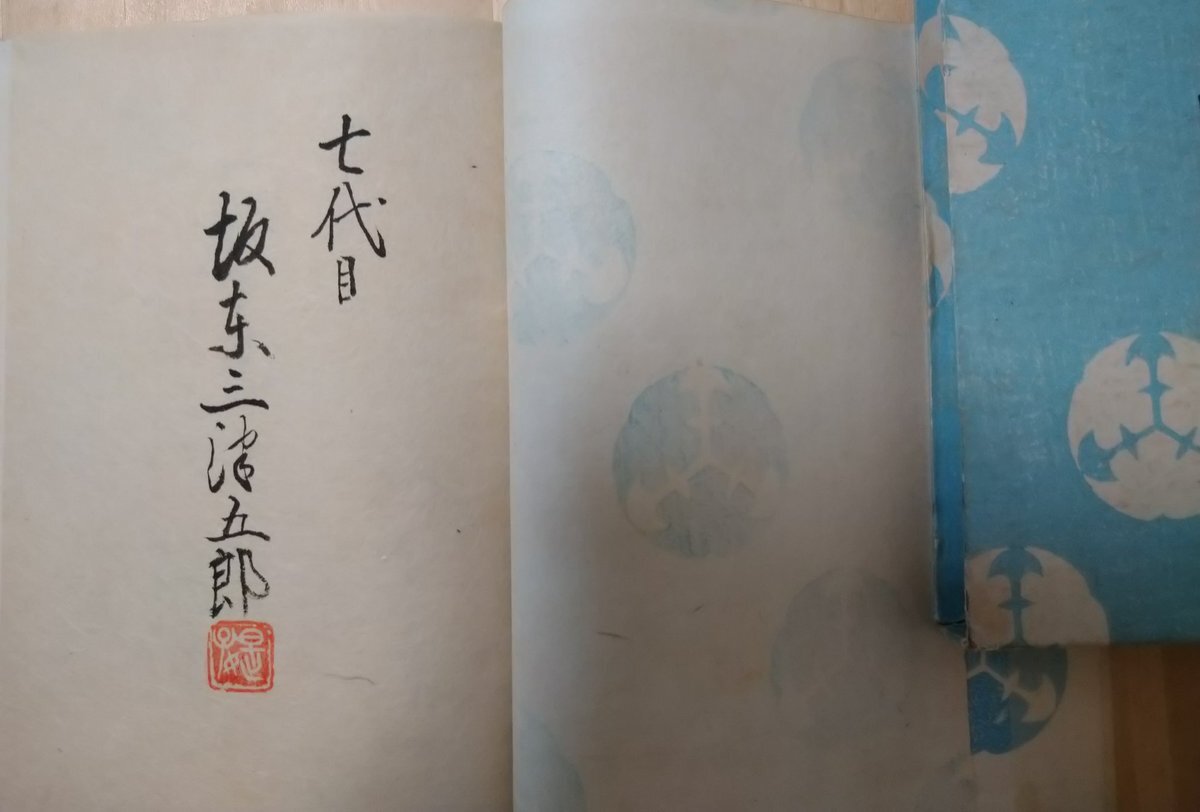 七代目
坂東三津五郎